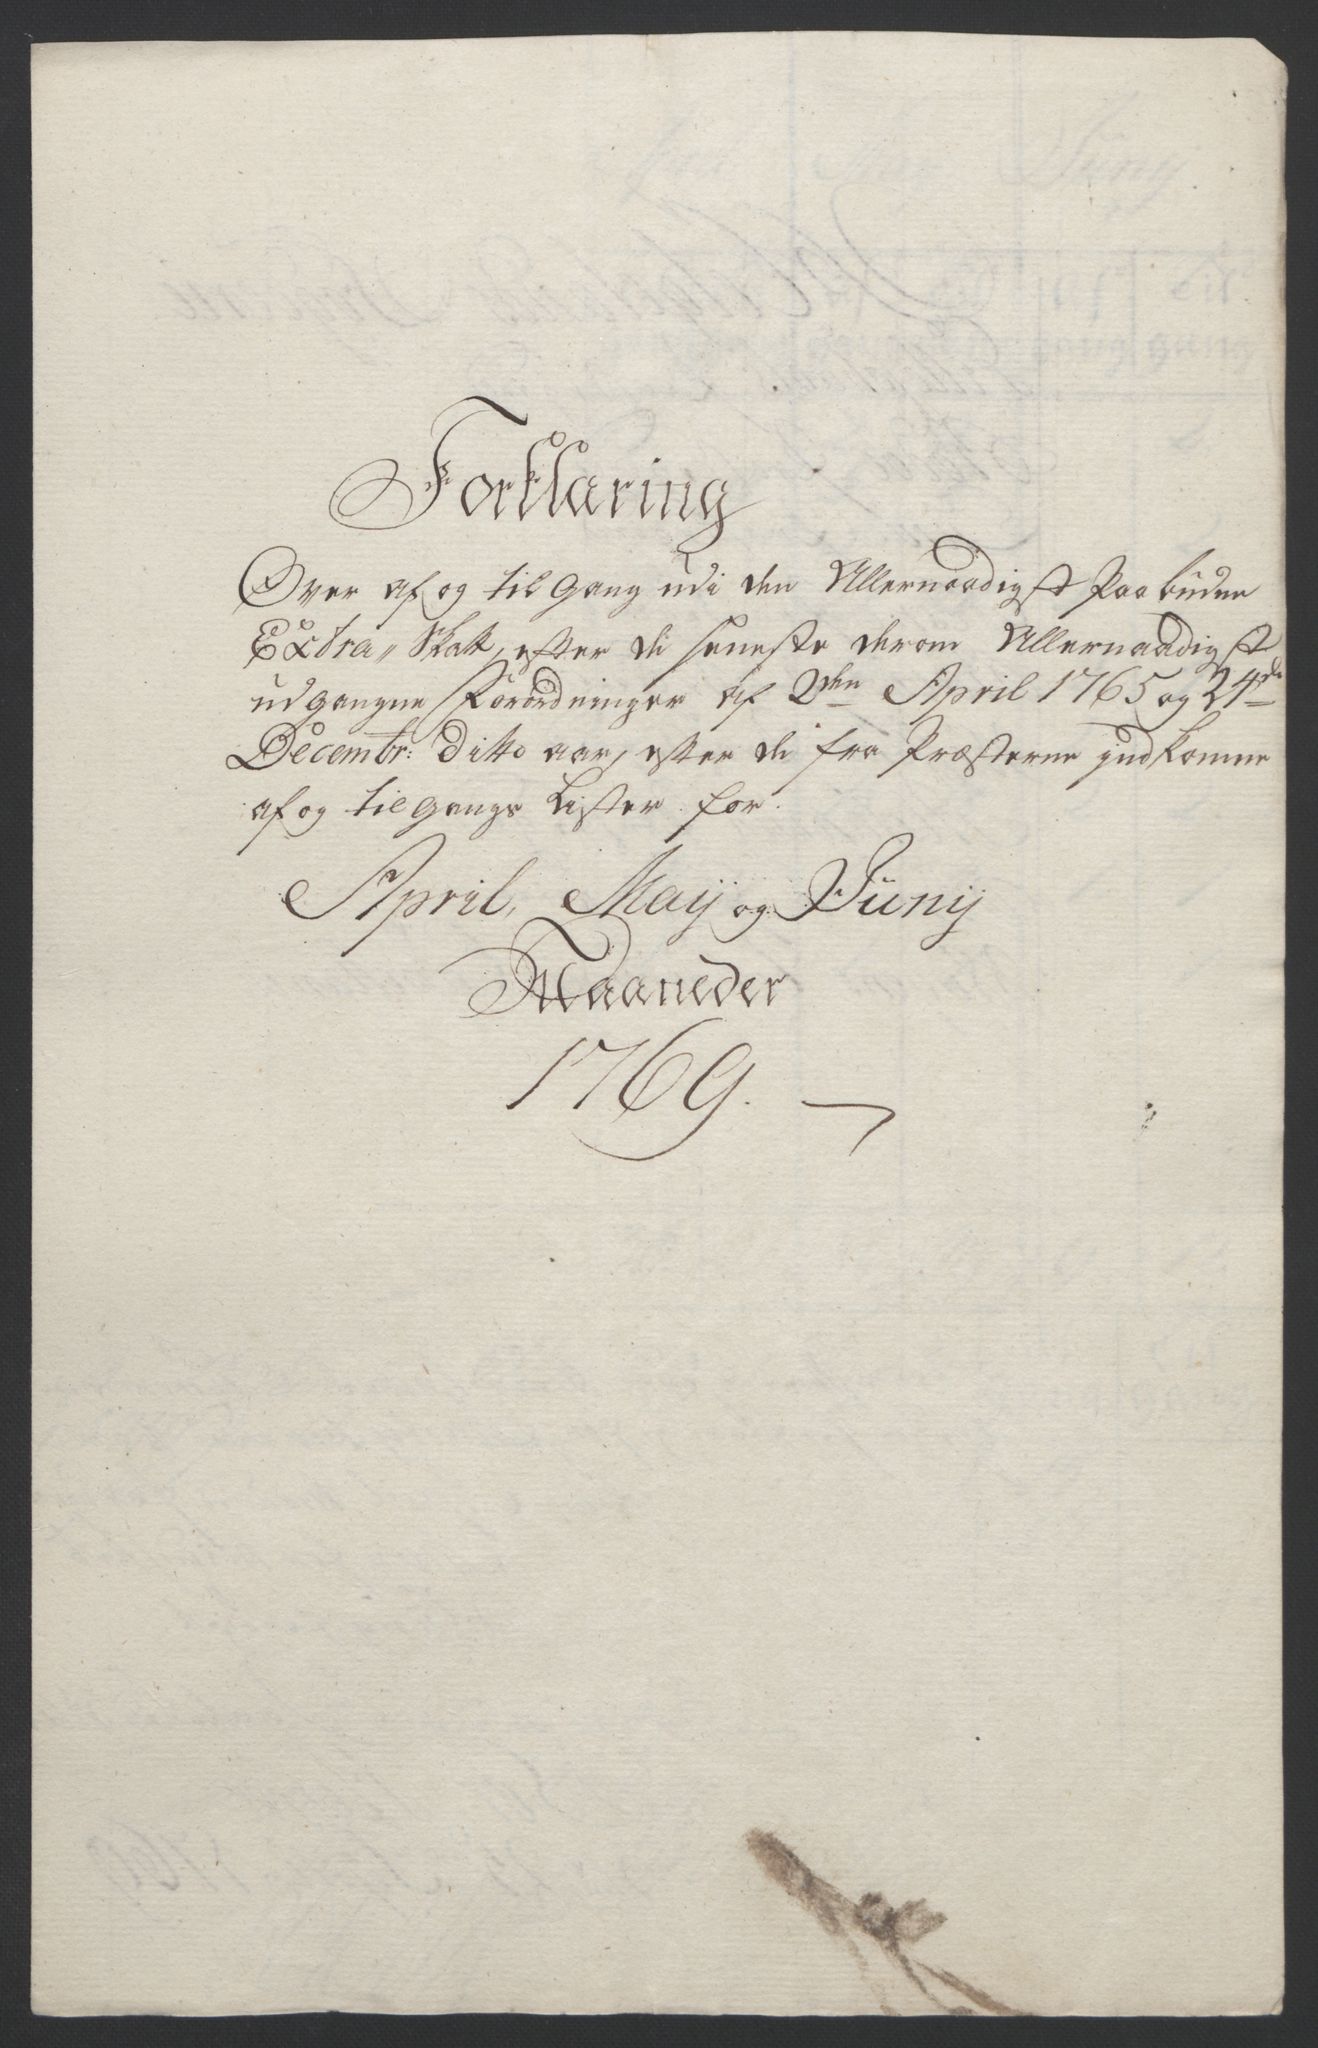 Forklaring
Over af og til Gang udi den Allernaadigst Paabudne
Extra„ Skatt, efter de seneste derom Allernaadigst
udgangne Forordninger af 2den April 1765 og 24de
Decembr: Ditto aar, efter de fra Præsterne indkomne
af og til Gangs Lister for
April, Maij og Junij
Maaneder
1769.